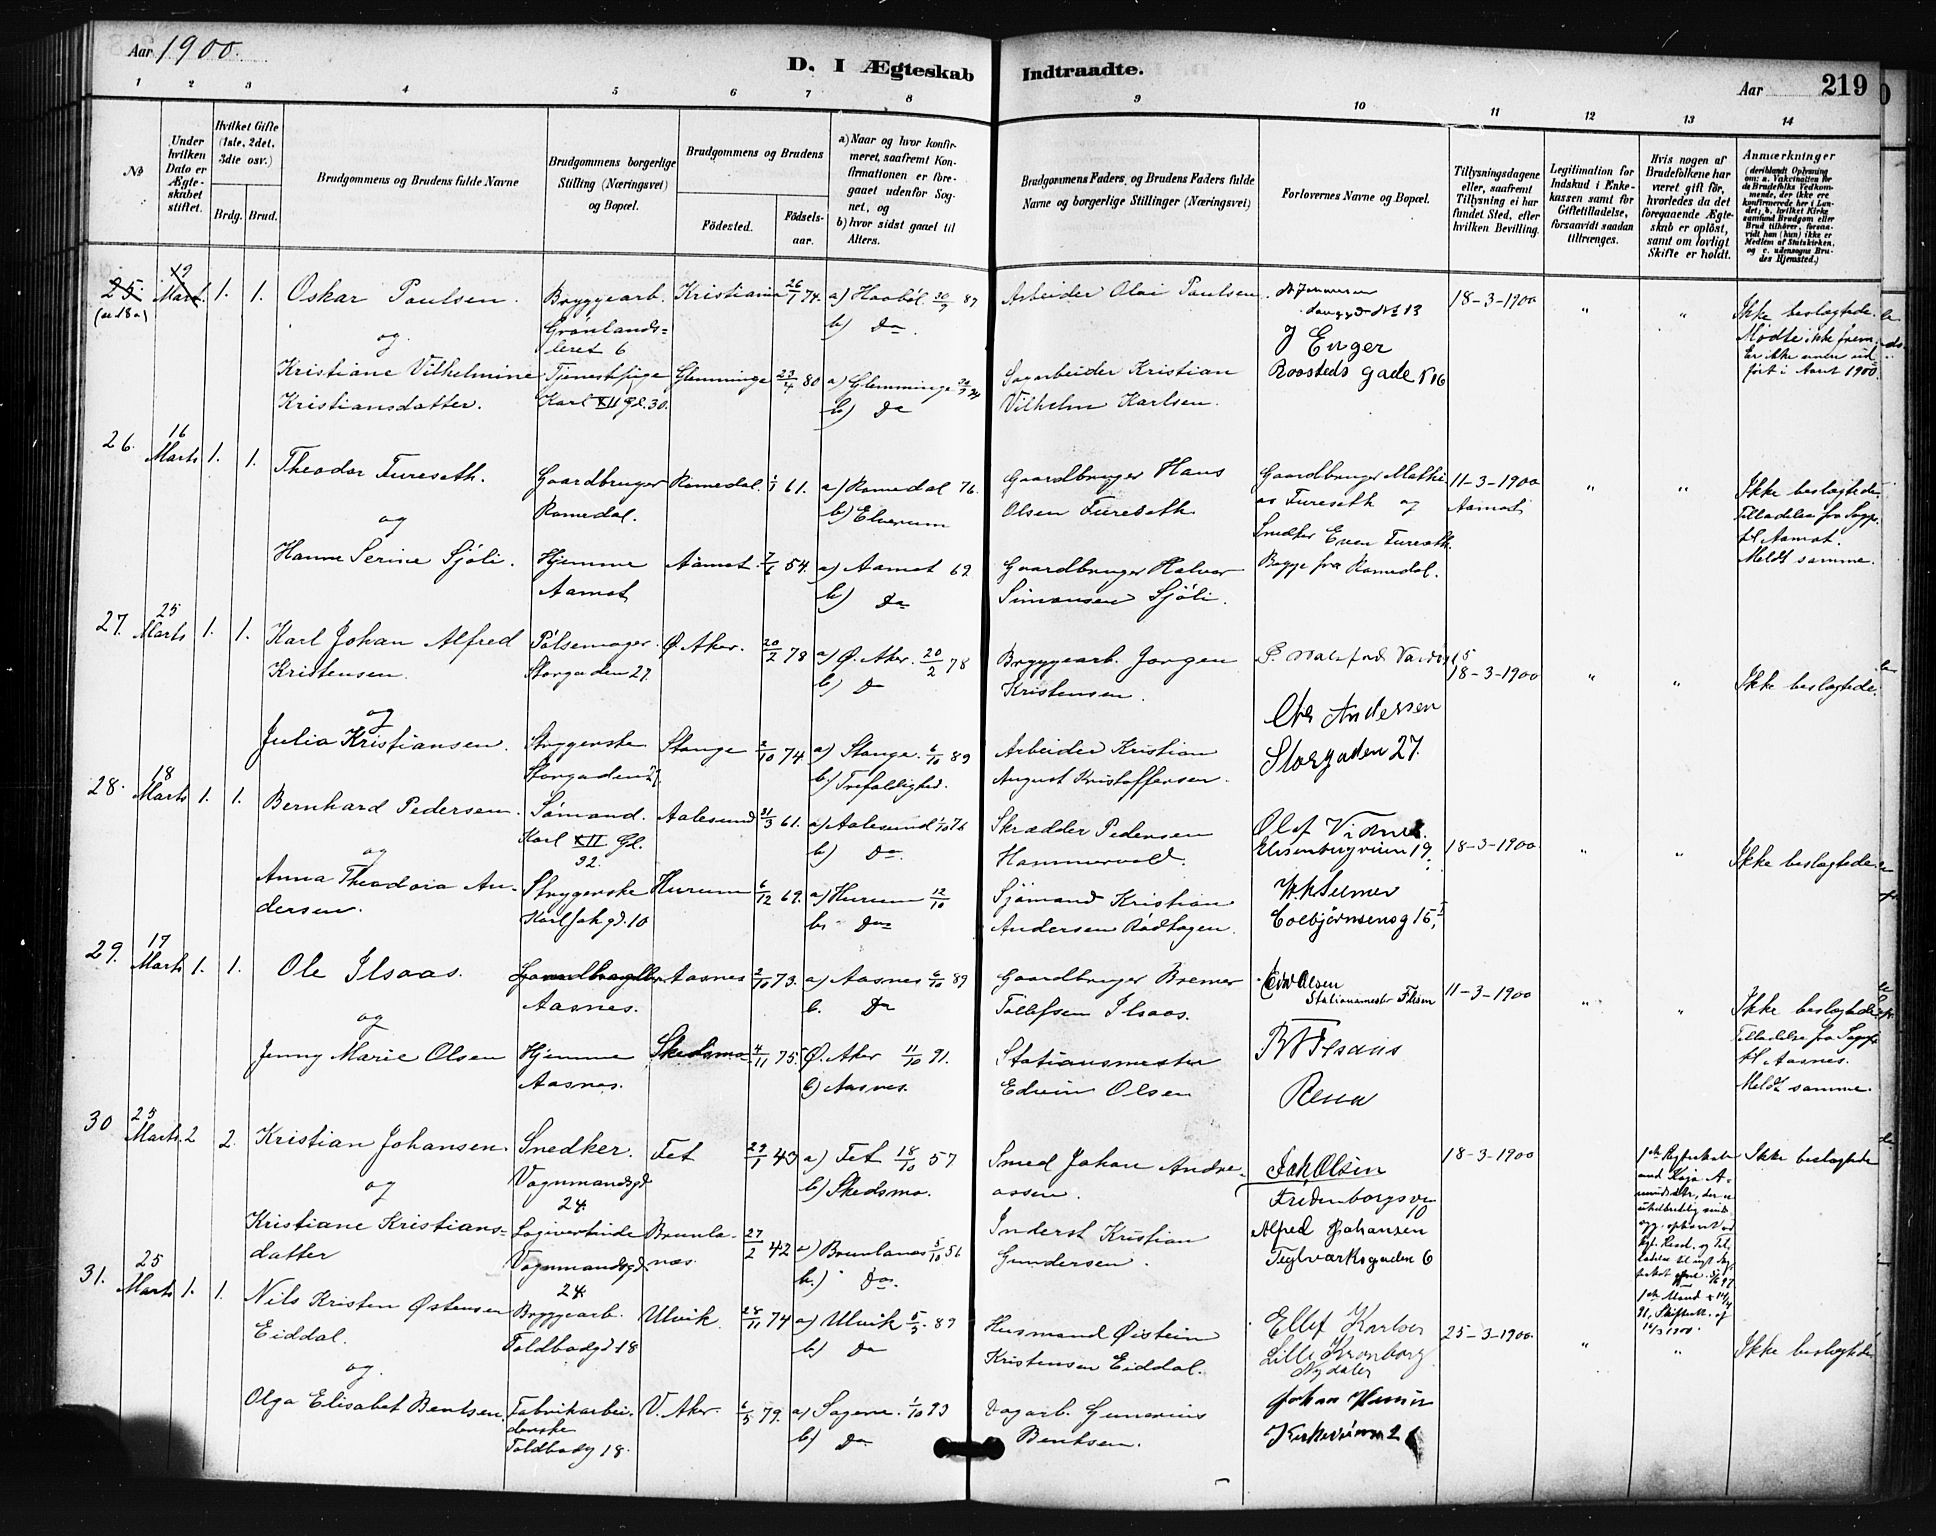 Aar 1900.
D. I Ægteskab Indtraadte.
Aar 219
1 2 3 4 5 6 7 8 9 10 11 12 13 14
No
Under hvilken Dato er Ægteskabet stiftet.
Hvilket Gifte (1ste, 2det, 3die osv.)
Brdg. Brud.
Brudgommens og Brudens fulde Navne
Brudgommens borgerlige Stilling (Næringsvei) og Bopæl.
Brudgommens og Brudens
Fødested.
Fødselsaar.
a) Naar og hvor konfirmeret, saafremt Konfirmationen er foregaaet udenfor Sognet, og
b) hvor sidst gaaet til Alters.
Brudgommens Faders og Brudens Faders fulde Navne og borgerlige Stillinger (Næringsvei)
Forlovernes Navne og Bopæl.
Tillysningsdagene eller, saafremt Tillysning ei har fundet Sted, efter hvilken Bevilling.
Legitimation for Indskud i Enkekassen samt for Giftetilladelse, forsaavidt saadan tiltrænges.
Hvis nogen af Brudefolkene har været gift før, hvorledes da det foregaaende Ægteskab er opløst, samt om lovligt Skifte er holdt.
Anmærkninger (deriblandt Oplysning om: a. Vakcination for de Brudefolks Vedkommende, der ikke ere konfirmerede her i Landet; b. hvilket Kirkesamfund Brudgom eller Brud tilhører, forsaavidt han (hun) ikke er Medlem af Statskirken, og c. udensogns Brudes Hjemsted.)
25 Marts 1. 1. Oskar Paulsen. Bryggearb. Kristiania 26/1 74. a) Haabøl 87 Arbeider Olai Paulsen 18-3-1900 " " Ikke beslægtede.
Grønlandsleret 6 b) Do J Enger Mødte ikke frem.
og Er ikke endn udført i Aaret 1900.
Kristiane Vilhelmine Tjenestpige Glemminge 23/4 80 a) Glemminge Sagarbeider Kristian Roosteds gade
Kristiansdatter. Karl XII gd. 30. b) Do Vilhelm Karlsen.
26. 16 Marts 1. 1. Theodor Fureseth. Gaardbruger Romedal. 1/1 61. a) Romedal 76. Gaardbruger Hans Gaardbruger Mathias 11-3-1900 " " Ikke beslægtede
Romedal. b) Elverum Olsen Fureseth Fureseth og Aamot Tilladelse fra Sogp.
og Snedker Even Fureseth. til Aamot.
Hanne Serine Sjøli. Hjemme Aamot. 7/6 54. a) Aamot 69. Gaardbruger Halvor Begge fra Romedal. Meldt samme.
Aamot b) Do Simonsen Sjøli.
27. 25 Marts 1. 1. Karl Johan Alfred Pølsemager Ø. Aker. 20/2 78 a) Ø. Aker. 20/2 78 Bryggearb. Jørgen 18-3-1900 " " Ikke beslægtede.
Kristensen. Storgaden 27. b) Do Kristensen.
og Chr Andersen
Julia Kristiansen. Strygerske Stange 2/10 74 a) Stange. 6/10 89 Arbeider Kristian Storgaden 27.
Storgaden 27. b) Trefoldighed. August Kristoffersen.
28. 18 Marts 1. 1. Bernhard Pedersen. Sømand. Aalesund 31/3 61. a) Aalesund 1/10 76 Skrædder Pedersen Olaf 18-3-1900 " " Ikke beslægtede
Karl XII Gd. 32. b) Do. Hammervold. 19.
og
Anna Theodora Andersen. Strygerske Hurum 6/12 69. a) Hurum 12/10 Sjømand Kristian
Karl Joh gd. 10 b) Do Andersen Rødtagen. Colbjørnsensg 15,
29. 17 Marts 1. 1. Ole Ilsaas. Aasnes 2/10 73. a) Aasnes 6/10 89 Gaardbruger Bremer Edv Olsen 11-3-1900 " " Ikke beslægtede
Aasnes. b. Do Tollefsen Ilsaas. Stationsmester Tilladelse fra Sogp.
og til Aasnes.
Jenny Marie Olsen Hjemme Skedsmo 4/11 75. Ø. Aker 11/10 91. Stationsmester Meldt samme.
Aasnes. b) Aasnes. Edvin Olsen Rena
30 25 Marts 2 2. Kristian Johansen. Snedker. Fet 29/1 43 a) Fet 18/10 57 Smed Johan Andreassen. Joh Olsen 18-3-1900 Ikke beslægtede
og Vognmandsgd 24. b) Skedsmo. Fredenborgsvn 10
Kristiane Kristiansdatter Logivertinde Brunlanæs. 27/2 42 a) Brunlanes 5/10 56 Inderst Kristian Alfred Johansen
Vognmandsgd. 24. b.) Do. Gundersen. Teglværksgaden 6
31. 25 Marts 1. 1. Nils Kristen Østensen Bryggearb. Ulvik. 28/11 74 a) Ulvik 5/3. 89 Husmand Øistein Ellef Karlsen 25-3-1900. " " Ikke beslægtede
Eiddal. Toldbodgd 18 b) Do Kristensen Eiddal. Lille Kronborg
og Nydalen
Olga Elisabet Bentsen. Fabrikarbeiderske V. Aker. 6/5 79. a) Sagene. 1/10 93 Dagarb. Gunerius Johan
Toldbodg 18. b) Do Bentsen. Kirkeveien 2